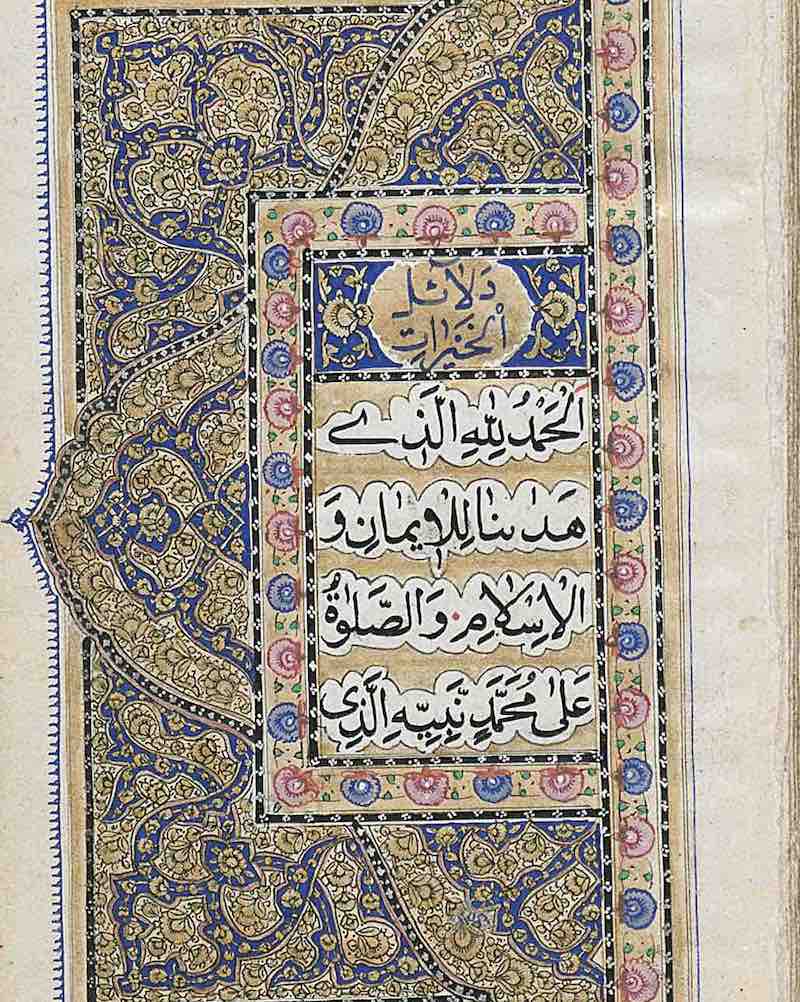 دَلَآئِلُ
الْخَيْرَاتِ
اَلْحَمْدُ لِلّٰهِ الَّذِے
هَدٰىنَا لِلْاِيْمَانِ وَ
الْاِسْلَامِ وَالصَّلٰوةُ
عَلٰى مُحَمَّدٍ نَّبِيِّهِ الَّذِى